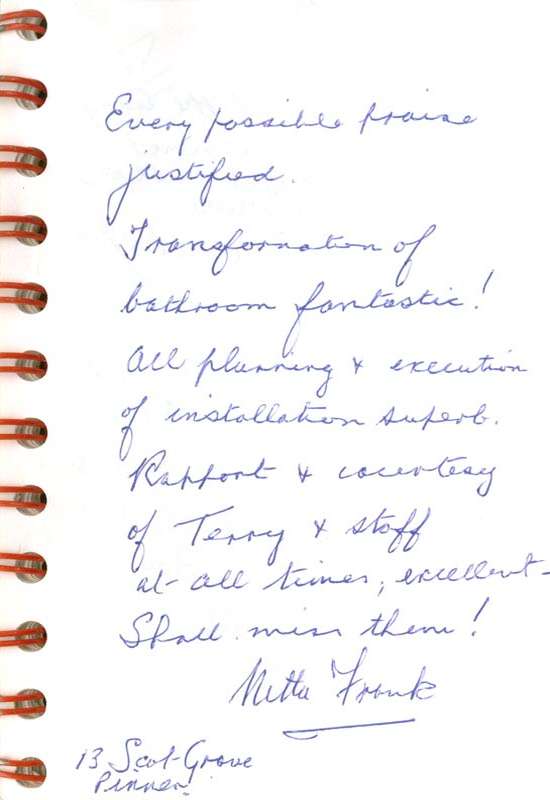 Every possible praise
justified.
Transformation of
bathroom fantastic!
All planning & execution
of installation superb.
Rapport & courtesy
of Terry & staff
at all times, excellent-
Shall miss them!
Netta Frank
13 Scot Grove
Pinner.